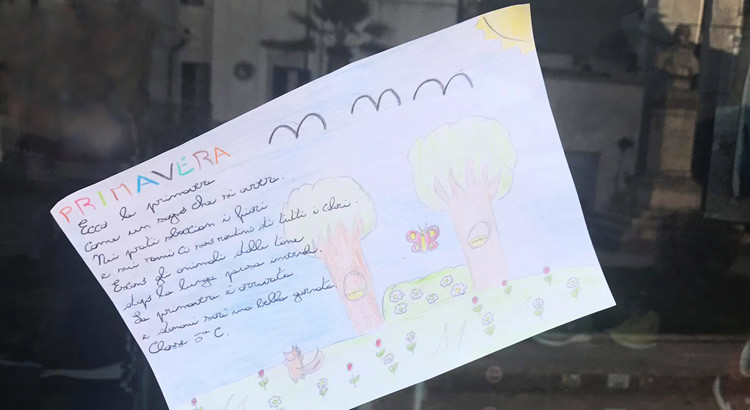 PRIMAVERA
Ecco la primavera
come un sogno che si avvera.
Nei prati sboccian i fiori
e sui rami ci son rondini di tutti i colori.
Escono gli animali dalle tane
dopo la lunga pausa invernale.
La primavera è arrivata
e domani sarà una bella giornata
Classe 5ª C.